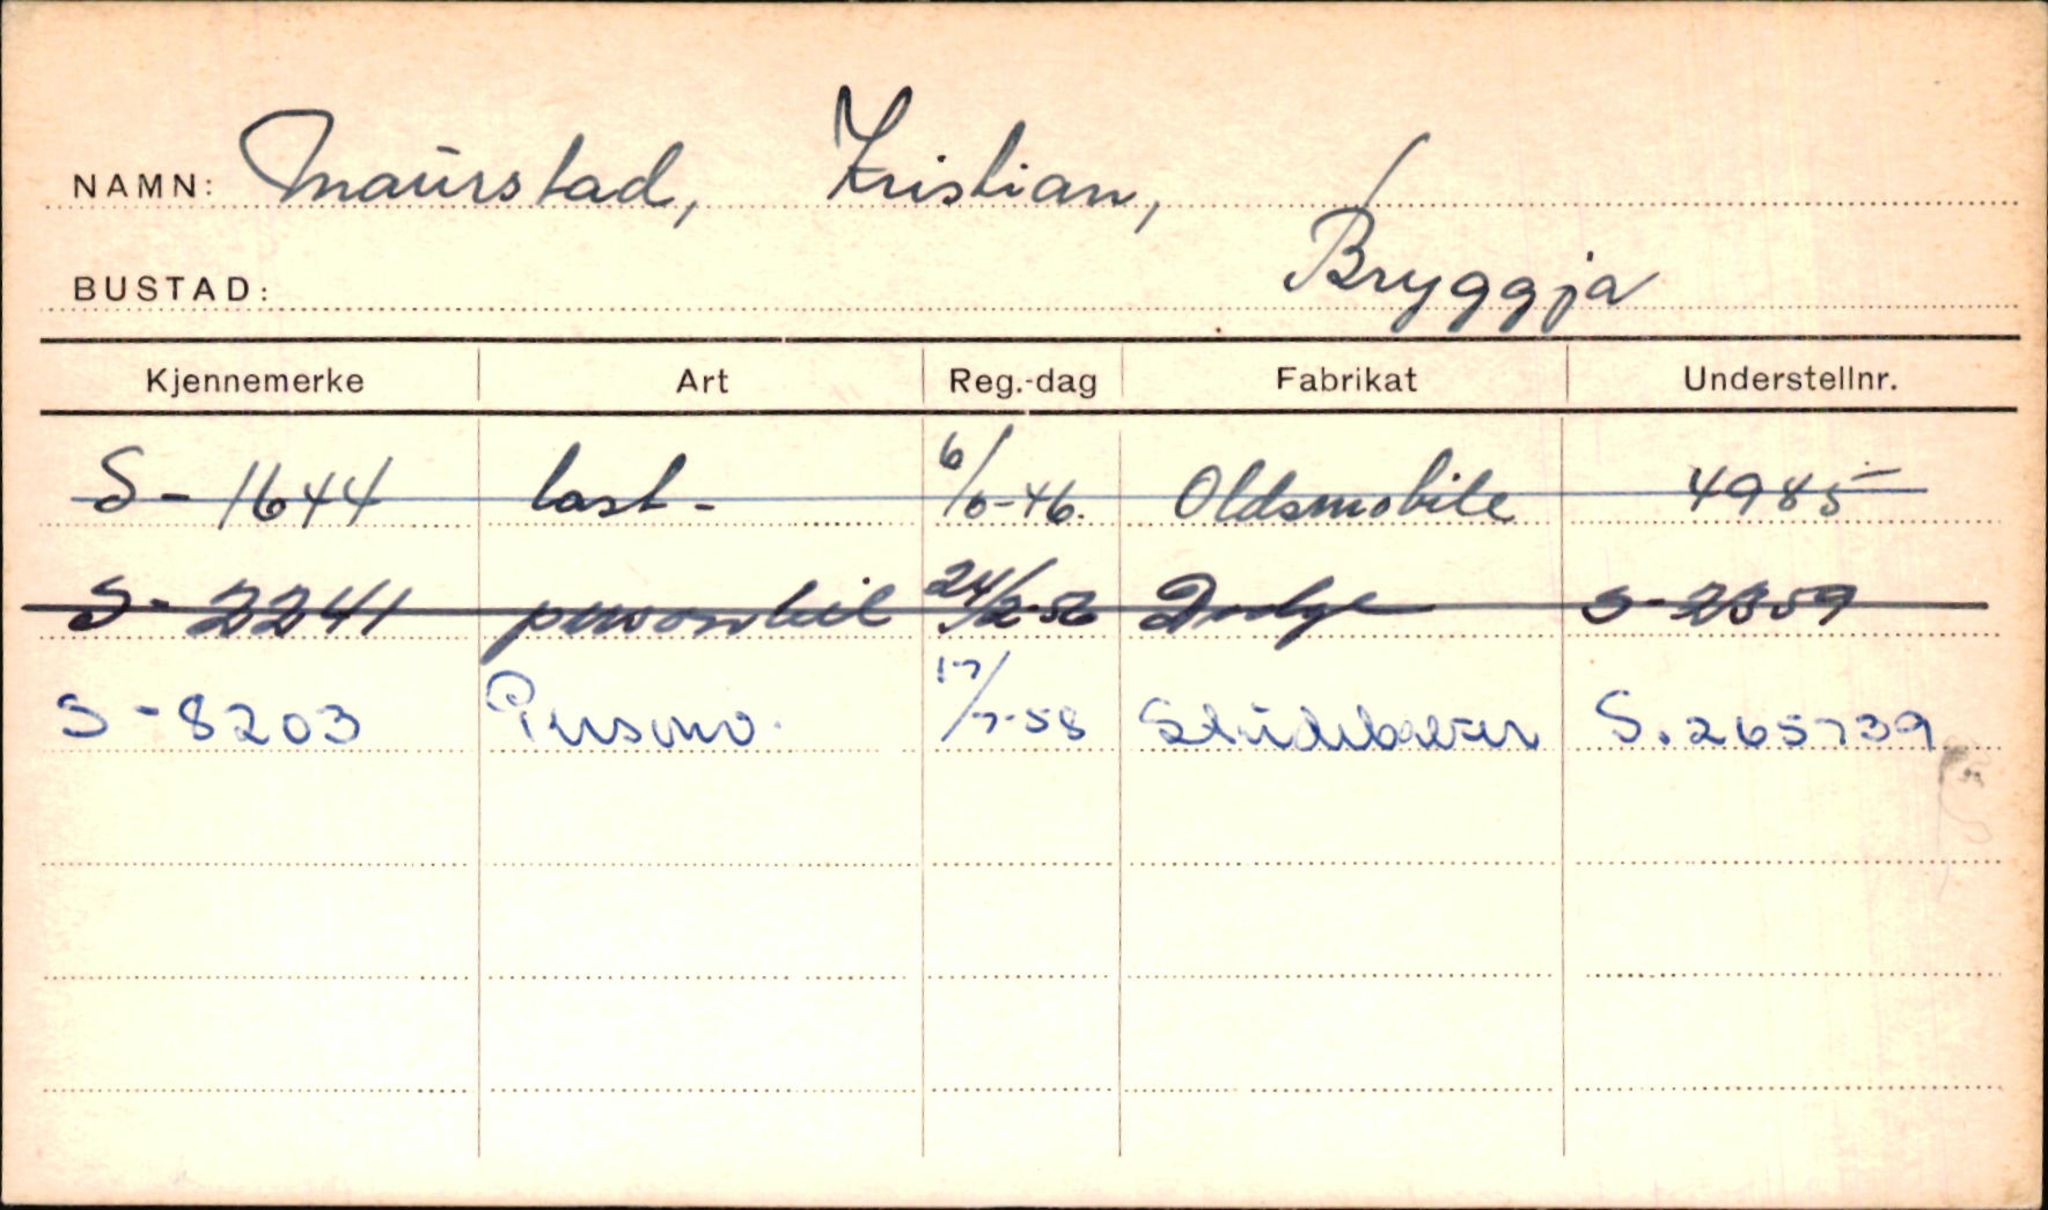 NAMN: Maurstad, Kristian,
BUSTAD: Bryggja
Kjennemerke Art Reg.-dag Fabrikat Understellnr.
S-1644 last- 6/6-46. Oldsmobile 4985
S-2241 personbil 24/2-56 Dodge S-2359
S-8203 Personv. 17/7-58 Studebaker S.265739